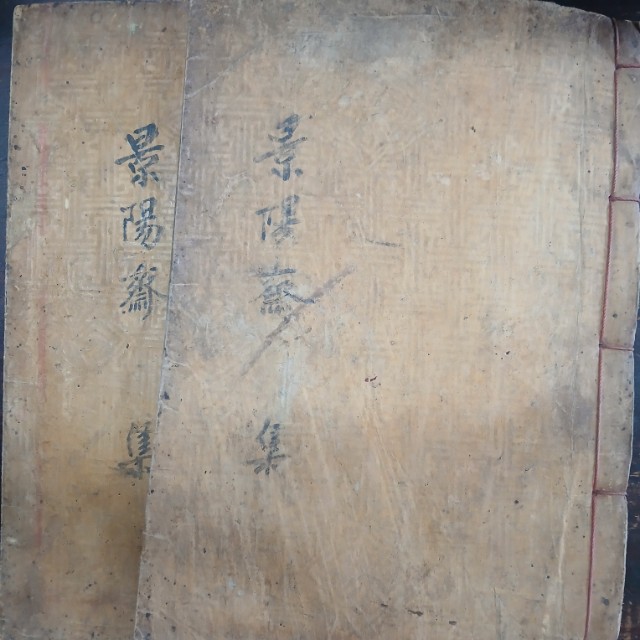 景陽齋集
景陽齋集